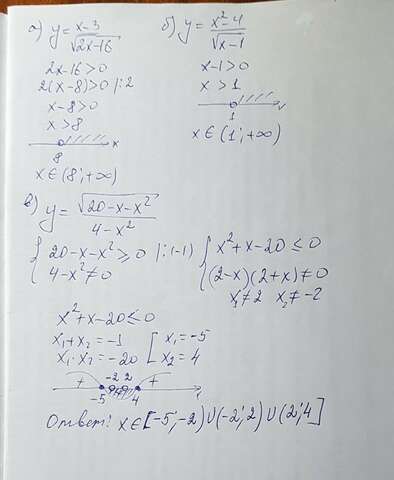 а) y = x-3 / √2x-16
2x-16>0
2(x-8)>0 |:2
x-8>0
x>8
8 x
x∈(8;+∞)
б) y = x²-4 / √x-1
x-1>0
x>1
1
x∈(1;+∞)
в) y = √20-x-x² / 4-x²
{ 20-x-x²≥0 |:(-1) { x²+x-20≤0
4-x²≠0 (2-x)(2+x)≠0
x₁≠2 x₂≠-2
x²+x-20≤0
x₁+x₂=-1 [ x₁=-5
x₁·x₂=-20 x₂=4
+ -2 2 +
-5 4
Ответ: x∈[-5;-2)∪(-2;2)∪(2;4]